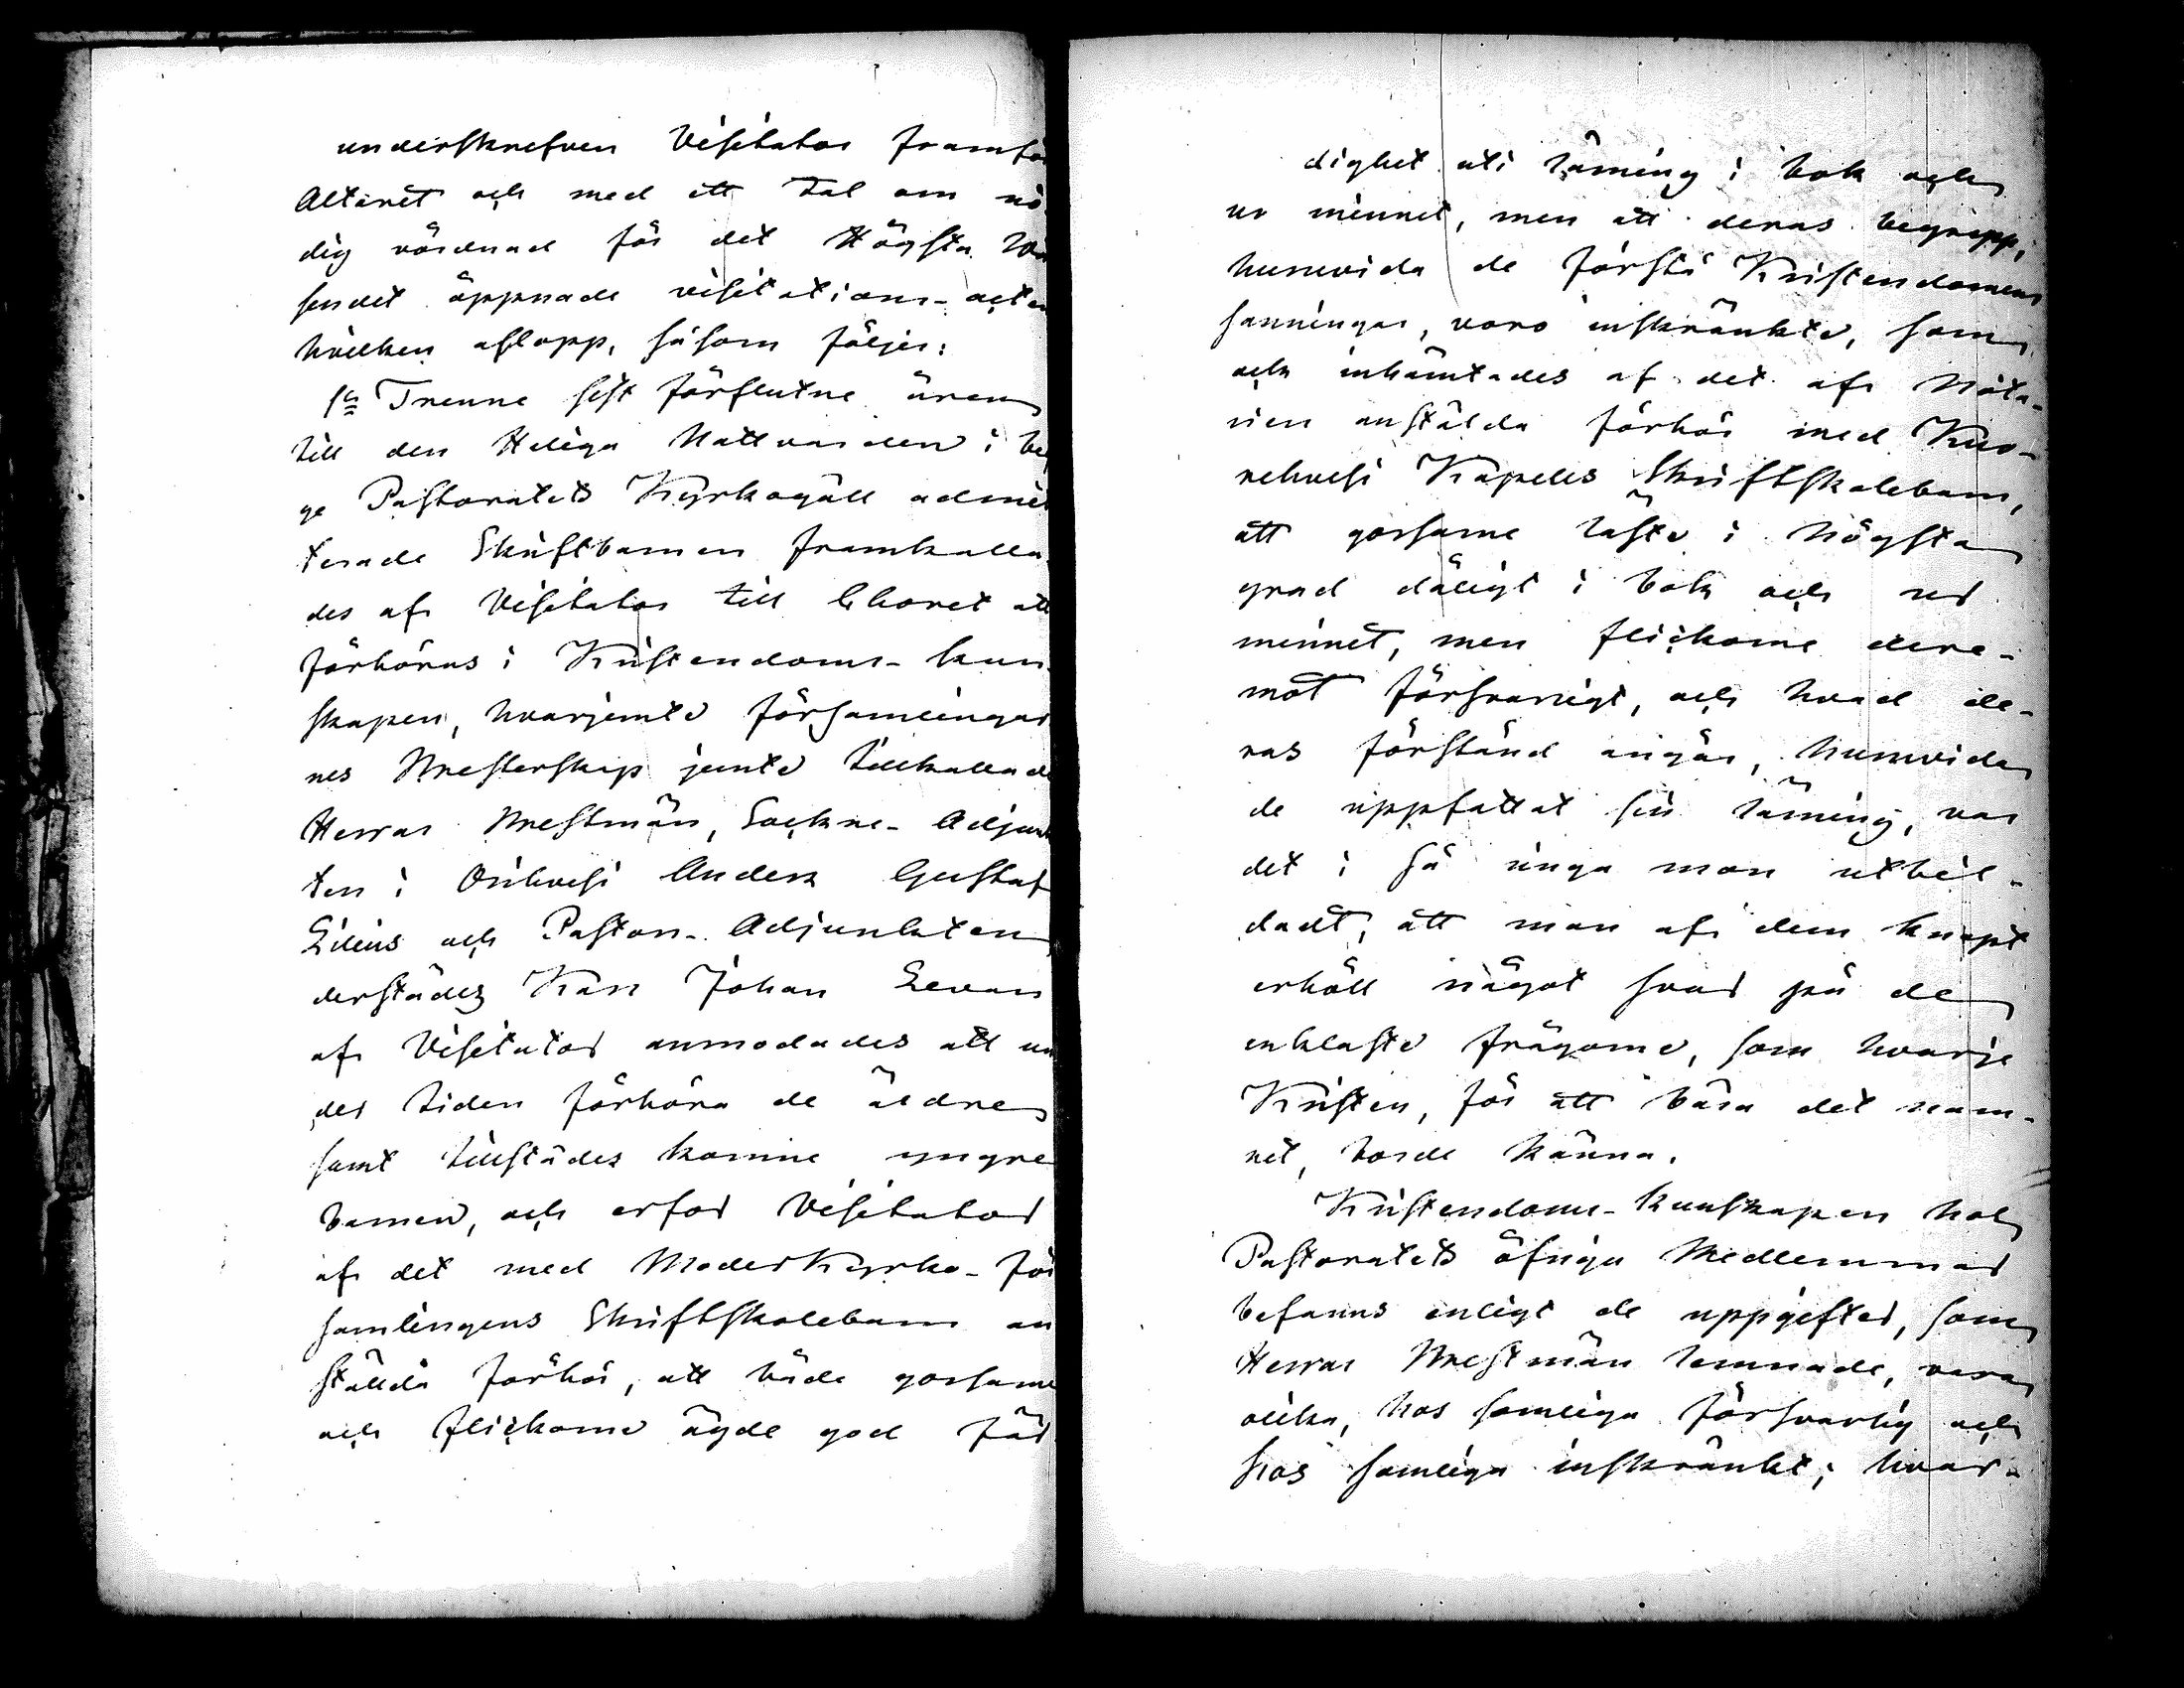 underskrefven Visitator framför
Altaret och med ett tal om nö-
dig vördnad för det Högsta Vä-
sendet öppnade visitations-acten
hvilken aflopp, såsom följer:
1o Trenne sist förflutne årens
till den Heliga Nattvarden i
ge Pastoratets Kyrkogäll admit
terade Skriftbarnen framkalla-
des af Visitator till Choret att
förhöras i Kristendoms-kun-
skapen, hvarjemte församlingar
nes Presterskap jemte tillkallade
Herrar Prestmän, Sockne-Adjunk
ten i Orihvesi Anders Gustaf
Lilius och Pastors-Adjunkten
derstädes Karl Johan Levan
af Visitator anmodades att un
der tiden förhöra de äldre
samt tillstädes komne yngre
barnen, och erfor Visitator
af det med Moderkyrko-för
samlingens Skriftskolebarn an
ställda förhör, att både gossarne
och flickorna ägde god fär
dighet uti läsning i bok och
ur minnet, men att deras begrepp,
huruvida de förstå Kristendomens
sanningar, voro inskränkte, som
ock inhämtades af det af Nota-
rien anstälda förhör med Kuo-
rehvesi Kapells Skriftskolebarn,
att gossarne läste i högsta
grad dåligt i bok och ur
minnet, men flickorna dere-
mot försvarligt, och hvad de-
ras förstånd angår, huruvida
de uppfattat sin läsning, var
det i så ringa mon utbil-
dadt, att man af dem knapt
erhöll något svar på de
enklaste frågorna, som hvarje
Kristen, för att bära det nam-
net, borde känna.
Kristendoms-kunskapen hos
Pastoratets öfriga Medlemmar
befanns enligt de uppgifter, som
Herrar Prestmän lemnade, vara
olika, hos somliga försvarlig och
hos somliga inskränkt; hvar-